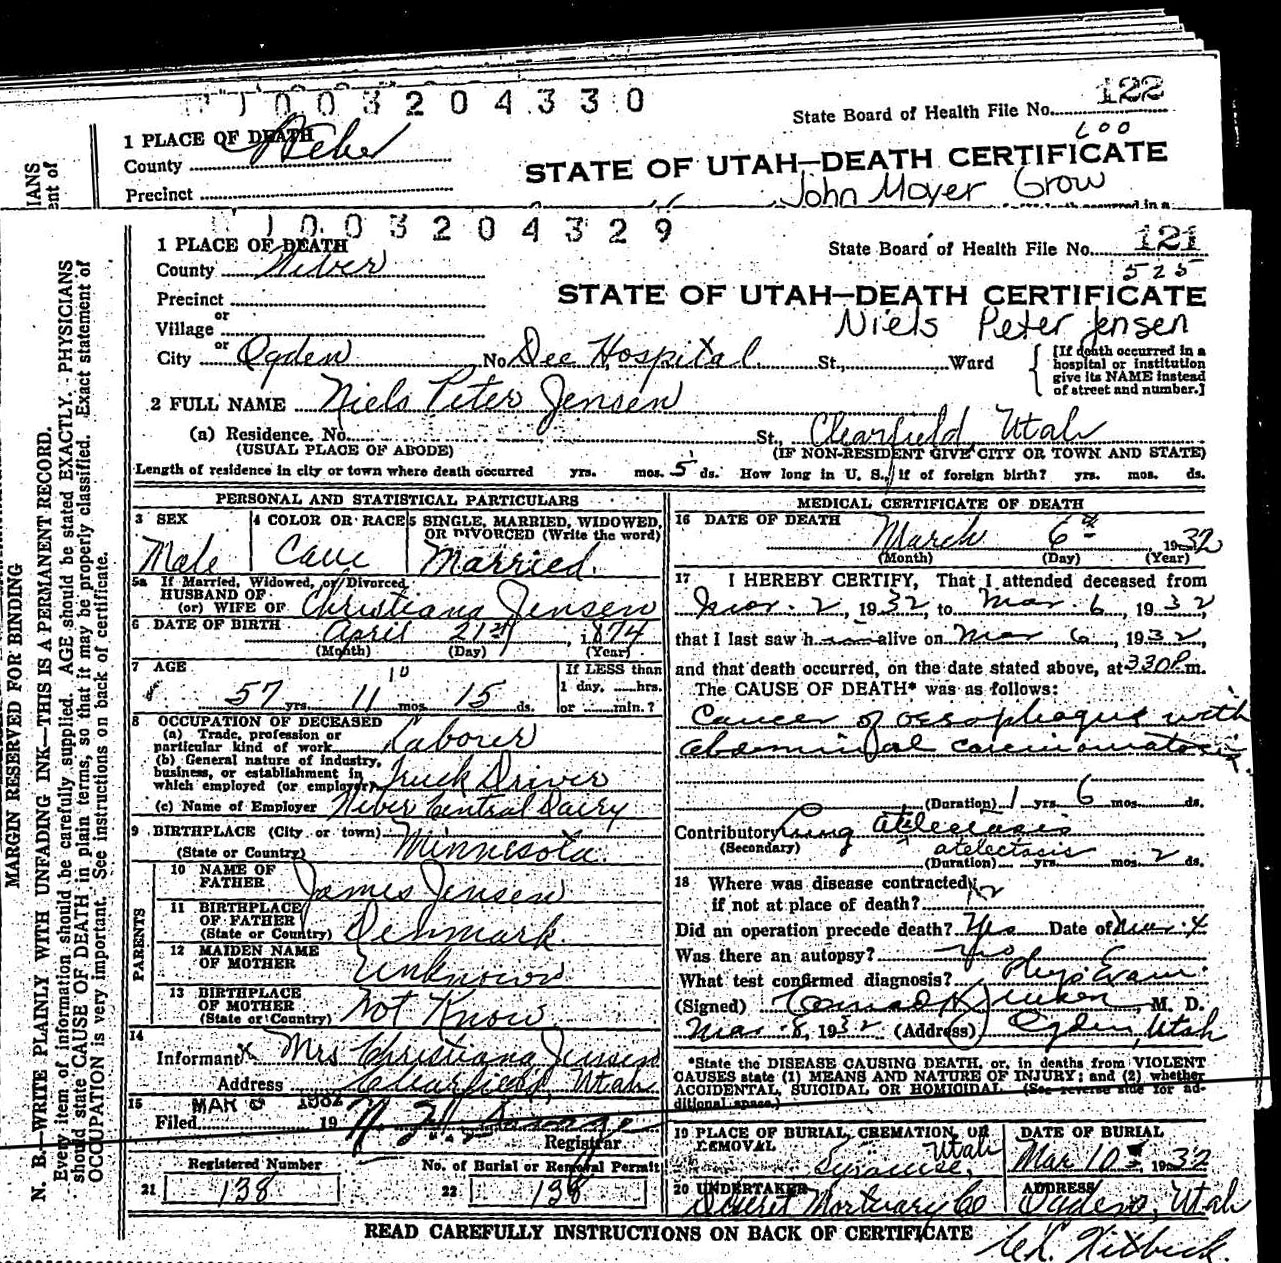 1003204330
State Board of Health File No. 122
600
1 PLACE OF DEATH
County Weber
STATE OF UTAH—DEATH CERTIFICATE
Precinct
John Moyer Grow
1003204329
1 PLACE OF DEATH
State Board of Health File No. 121
County Weber
525
Precinct
STATE OF UTAH—DEATH CERTIFICATE
or
Village
Niels Peter Jensen
or
City Ogden No. Dee Hospital St., Ward
[If death occurred in a
hospital or institution
give its NAME instead
of street and number.]
2 FULL NAME Niels Peter Jensen
(a) Residence. No. St., Clearfield, Utah
(USUAL PLACE OF ABODE) (IF NON-RESIDENT GIVE CITY OR TOWN AND STATE)
Length of residence in city or town where death occurred yrs. mos. 5 ds. How long in U. S., if of foreign birth? yrs. mos. ds.
PERSONAL AND STATISTICAL PARTICULARS
3 SEX
Male
4 COLOR OR RACE
Cauc
5 SINGLE, MARRIED, WIDOWED,
OR DIVORCED (Write the word)
Married.
5a If Married, Widowed, or Divorced
HUSBAND OF
(or) WIFE OF Christiana Jensen
6 DATE OF BIRTH April 21st, 1874
(Month) (Day) (Year)
7 AGE 10
57 yrs. 11 mos. 15 ds.
If LESS than
1 day, hrs.
or min.?
8 OCCUPATION OF DECEASED
(a) Trade, profession or
particular kind of work Laborer
(b) General nature of industry,
business, or establishment in
which employed (or employer) Truck Driver
(c) Name of Employer Weber Central Dairy
9 BIRTHPLACE (City or town)
(State or Country) Minnesota.
PARENTS
10 NAME OF
FATHER James Jensen
11 BIRTHPLACE
OF FATHER
(State or Country) Denmark
12 MAIDEN NAME
OF MOTHER Unknown
13 BIRTHPLACE
OF MOTHER
(State or Country) Not Know
14
Informant x Mrs Christiana Jensen
Address Clearfield, Utah
15 MAR 1932
Filed 19
Registrar
Registered Number
21 138
No. of Burial or Removal Permit
22 138
MEDICAL CERTIFICATE OF DEATH
16 DATE OF DEATH
March 6th 1932
(Month) (Day) (Year)
17 I HEREBY CERTIFY, That I attended deceased from
Mar. 2, 1932, to Mar. 6, 1932,
that I last saw h alive on Mar 6, 1932,
and that death occurred, on the date stated above, at 330P m.
The CAUSE OF DEATH* was as follows:
Cancer of oesophagus with
abdominal carcinomatosis.
(Duration) 1 yrs. 6 mos. ds.
Contributory Lung atelectasis
(Secondary) atelectasis
(Duration) yrs. mos. 2 ds.
18 Where was disease contracted
if not at place of death?
Did an operation precede death? Yes Date of Mar. 4
Was there an autopsy?
What test confirmed diagnosis? Phys Exam.
(Signed) M. D.
Mar. 8, 1932 (Address) Ogden, Utah
*State the DISEASE CAUSING DEATH, or, in deaths from VIOLENT
CAUSES state (1) MEANS AND NATURE OF INJURY; and (2) whether
ACCIDENTAL, SUICIDAL OR HOMICIDAL. (See reverse side for ad-
ditional space.)
19 PLACE OF BURIAL, CREMATION, OR
REMOVAL Utah
Syracuse,
DATE OF BURIAL
Mar 10 1932
20 UNDERTAKER
Deseret Mortuary Co
ADDRESS
Ogden, Utah
READ CAREFULLY INSTRUCTIONS ON BACK OF CERTIFICATE
MARGIN RESERVED FOR BINDING
N. B.—WRITE PLAINLY WITH UNFADING INK—THIS IS A PERMANENT RECORD.
Every item of information should be carefully supplied. AGE should be stated EXACTLY. PHYSICIANS
should state CAUSE OF DEATH in plain terms, so that it may be properly classified. Exact statement of
OCCUPATION is very important. See instructions on back of certificate.